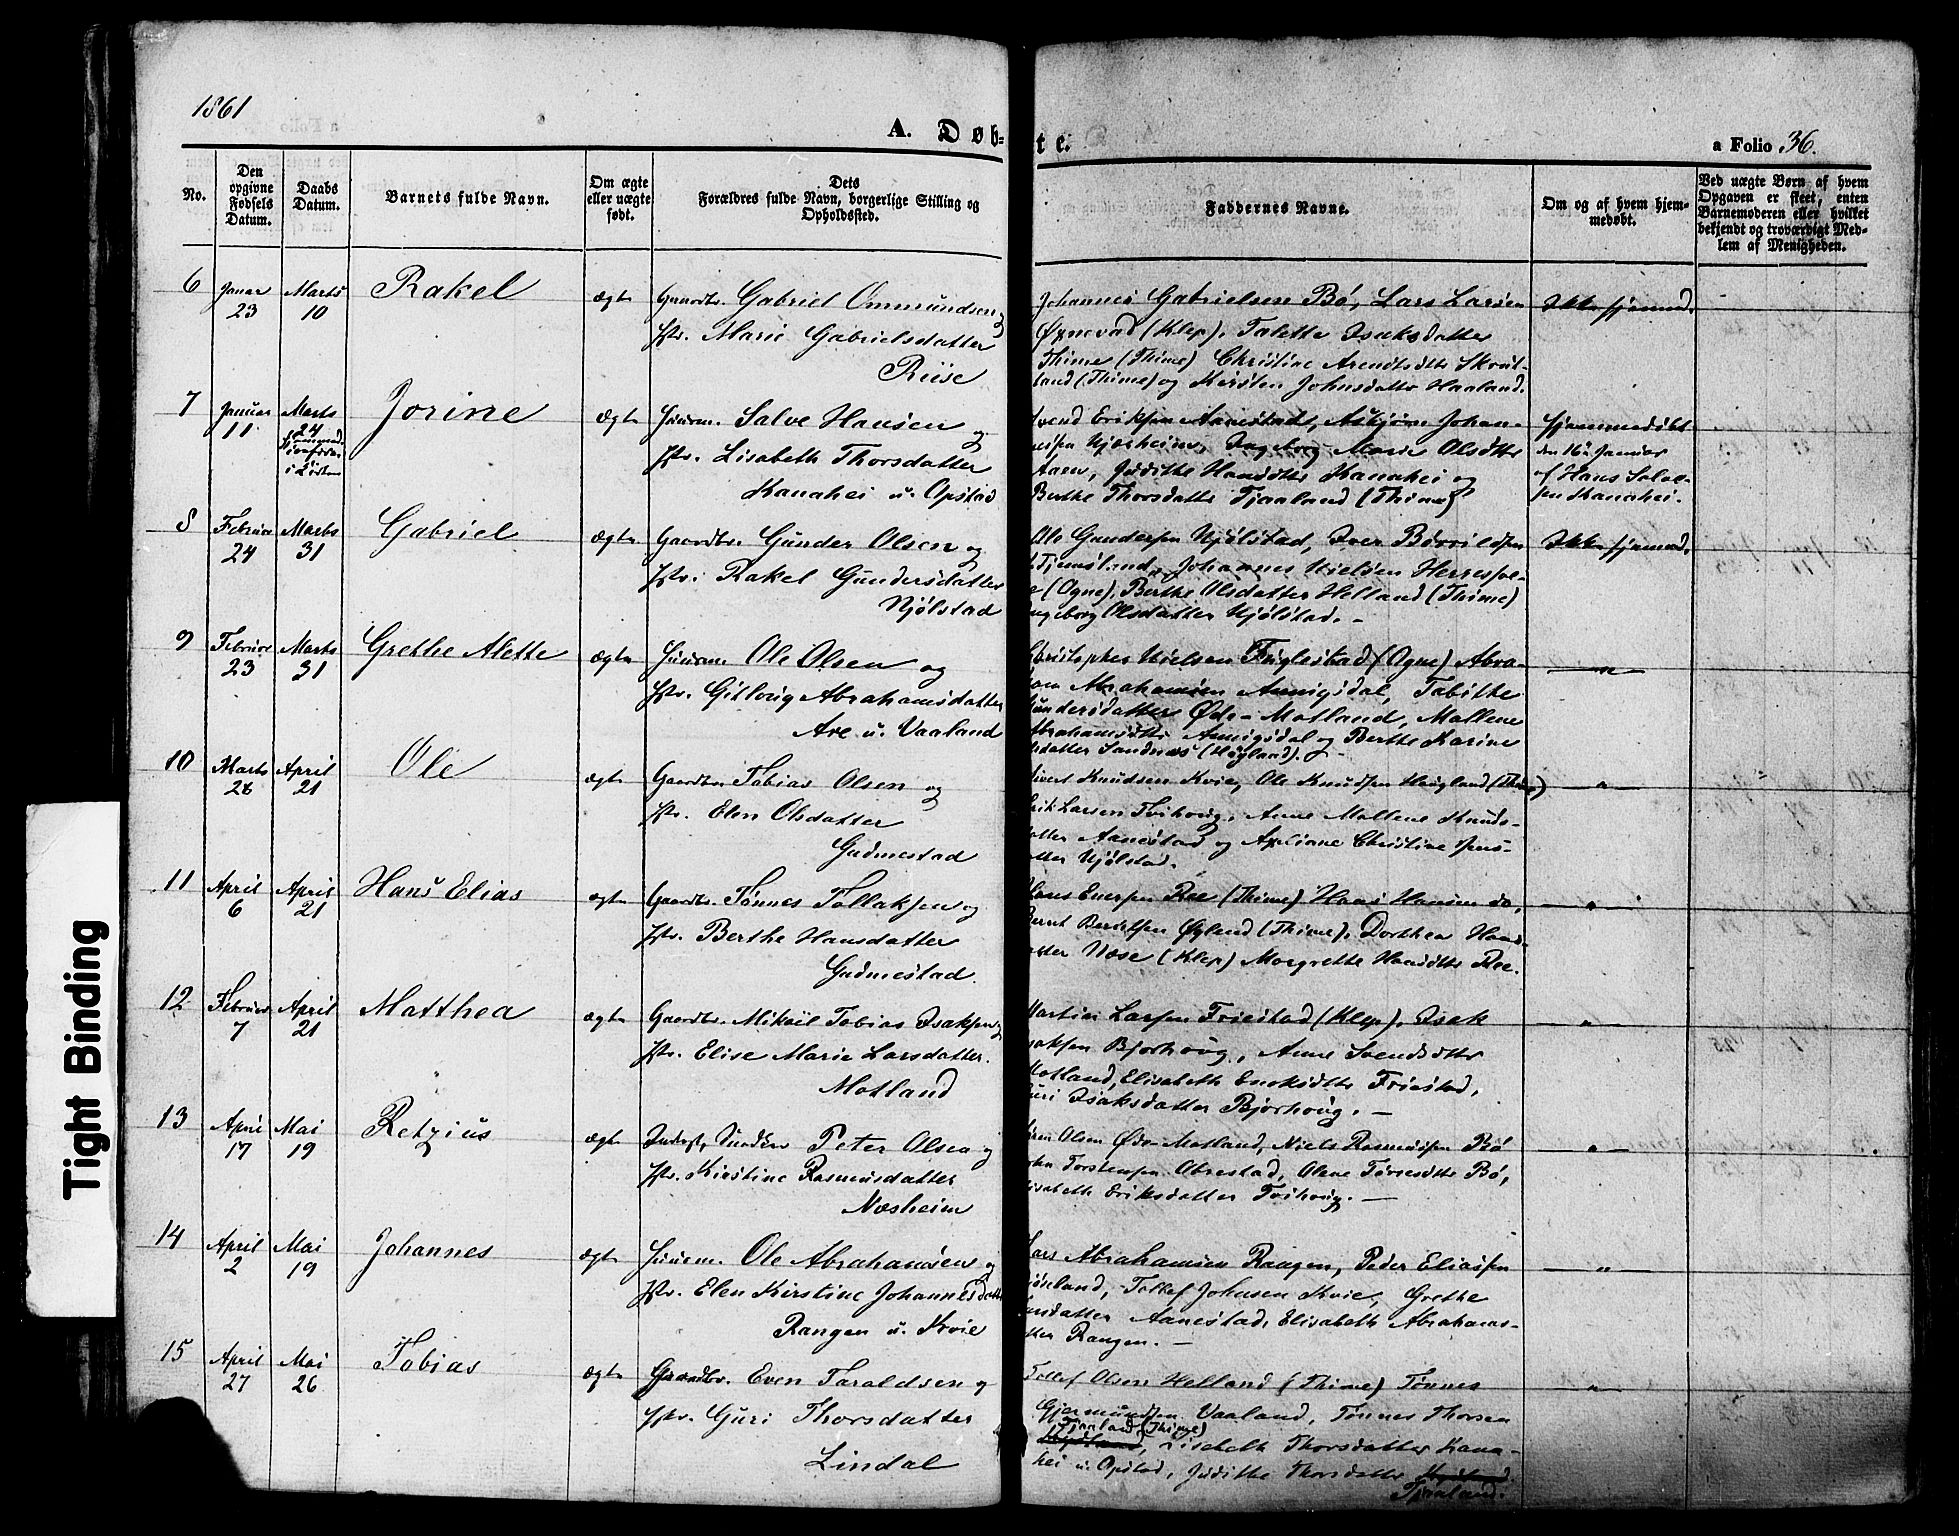 1861
A. Døb-
te.
a Folio 36.
No.
Den
opgivne
Fødsels
Datum.
Daabs
Datum.
Barnets fulde Navn.
Om ægte
eller uægte
født.
Dets
Forældres fulde Navn, borgerlige Stilling og
Opholdssted.
Faddernes Navne.
Om og af hvem hjem-
medøbt.
Ved uægte Børn af hvem
Opgaven er skeet, enten
Barnemoderen eller hvilket
bekjendt og troværdigt Med-
lem af Menigheden.
6
Januar
23
Marts
10
Rakel
ægte
Gaardbr. Gabriel Ommundsen og
Hstr. Marie Gabrielsdatter
Riise
Johannes Gabrielsen Bø, Lars Larsen
Øxnevad (Klep), Talette Isaksdatter
Thime (Thime) Christine Arendtsdttr Skrut-
land (Thime) og Kirsten Johnsdattr Haaland.
Ikke hjemmed.
7
Januar
11
Marts
24
Jorine
ægte
Huusm. Salve Hansen og
Hstr. Lisabeth Thorsdatter
Kanahei u. Opstad
Svend Eriksen Aanestad, Asbjørn Johan-
nesen Njærheim, Ingeborg Marie Olsdttr
Aaen, Judithe Hansdttr Kanahei og
Berthe Thorsdattr Tjaaland (Thime)
Hjemmedøbt
den 16de Januar
af Hans Salve-
sen Kanahei.
8
Februar
24
Marts
31
Gabriel
ægte
Gaardbr. Gunder Olsen og
Hstr. Rakel Gundersdatter
Njølstad
Ole Gundersen Njølstad, Iver Børrildsen
Johannes Nielsen
(Ogne), Berthe Olsdatter Helland (Thime)
Ingeborg Olsdatter Njølstad. —
Ikke hjemmed.
9
Februar
23
Marts
31
Grethe Alette
ægte
Huusm. Ole Olsen og
Hstr. Gitlovig Abrahamsdatter
Are u. Vaaland
Christopher Nielsen Fuglestad (Ogne) Abra-
ham Abrahamsen Aunigsdal, Tabithe
Gundersdatter Øde-Motland, Mallene
Abrahamsdttr Aunigsdal og Berthe Karine
Olsdatter Sandnæs (Høgland). —
— " —
10
Marts
28
April
21
Ole
ægte
Gaardbr. Tobias Olsen og
Hstr. Elen Olsdatter
Gudmestad
Sivert Knudsen Kvie, Ole Knudsen Haugland (Thime)
Erik Larsen Tvihoug, Anne Mallene Knuds-
datter Aanestad og Apliane Christine Ivers-
datter Njølstad.
— " —
11
April
6
April
21
Hans Elias
ægte
Gaardbr. Tønnes Tollaksen og
Hstr. Berthe Hansdatter
Gudmestad.
Hans Enersen Ree (Thime) Hans Hansen do,
Bernt Berntsen Øglend (Thime), Dorthea Hans-
datter Næse (Klep) Margrethe Hansdttr Ree.
— " —
12
Februar
7
April
21
Matthea
ægte
Gaardbr. Mikael Tobias Isaksen og
Hstr. Elise Marie Larsdatter.
Motland
Martin Larsen Friestad (Klep), Isak
Isaksen Bjorhoug, Anne Svendsdttr
Motland, Elisabeth Enoksdttr Friestad,
Guri Isaksdatter Bjorhoug. —
— " —
13
April
17
Mai
19
Retzius
ægte
Peter Olsen og
Hstr. Kirstine Rasmusdatter
Næsheim
Olsen Øde-Motland, Niels Rasmussen Bø
Torstensen Obrestad, Olene Tørresdttr Bø,
Elisabeth Eriksdatter Tvihoug. —
— " —
14
April
2
Mai
19
Johannes
ægte
Huusm. Ole Abrahamsen og
Hstr. Elen Kirstine Johannesdattr
Rangen u. Kvie
Lars Abrahamsen Rangen, Peder Eliassen
Tollef Johnsen Kvie, Grethe
Aanestad, Elisabeth Abrahams-
datter Rangen. —
— " —
15
April
27
Mai
26
Tobias
ægte
Gaardbr. Even Taraldsen og
Hstr. Guri Thorsdatter
Lindal
Tollef Olsen Helland (Thime) Tønnes
Gjermundsen Vaaland, Tønnes Thorsen
Tjaaland (Thime)
Lisebeth Thorsdatter Kana-
hei u. Opstad, Judithe Thorsdatter
Tjaaland.
— " —
Tight Binding